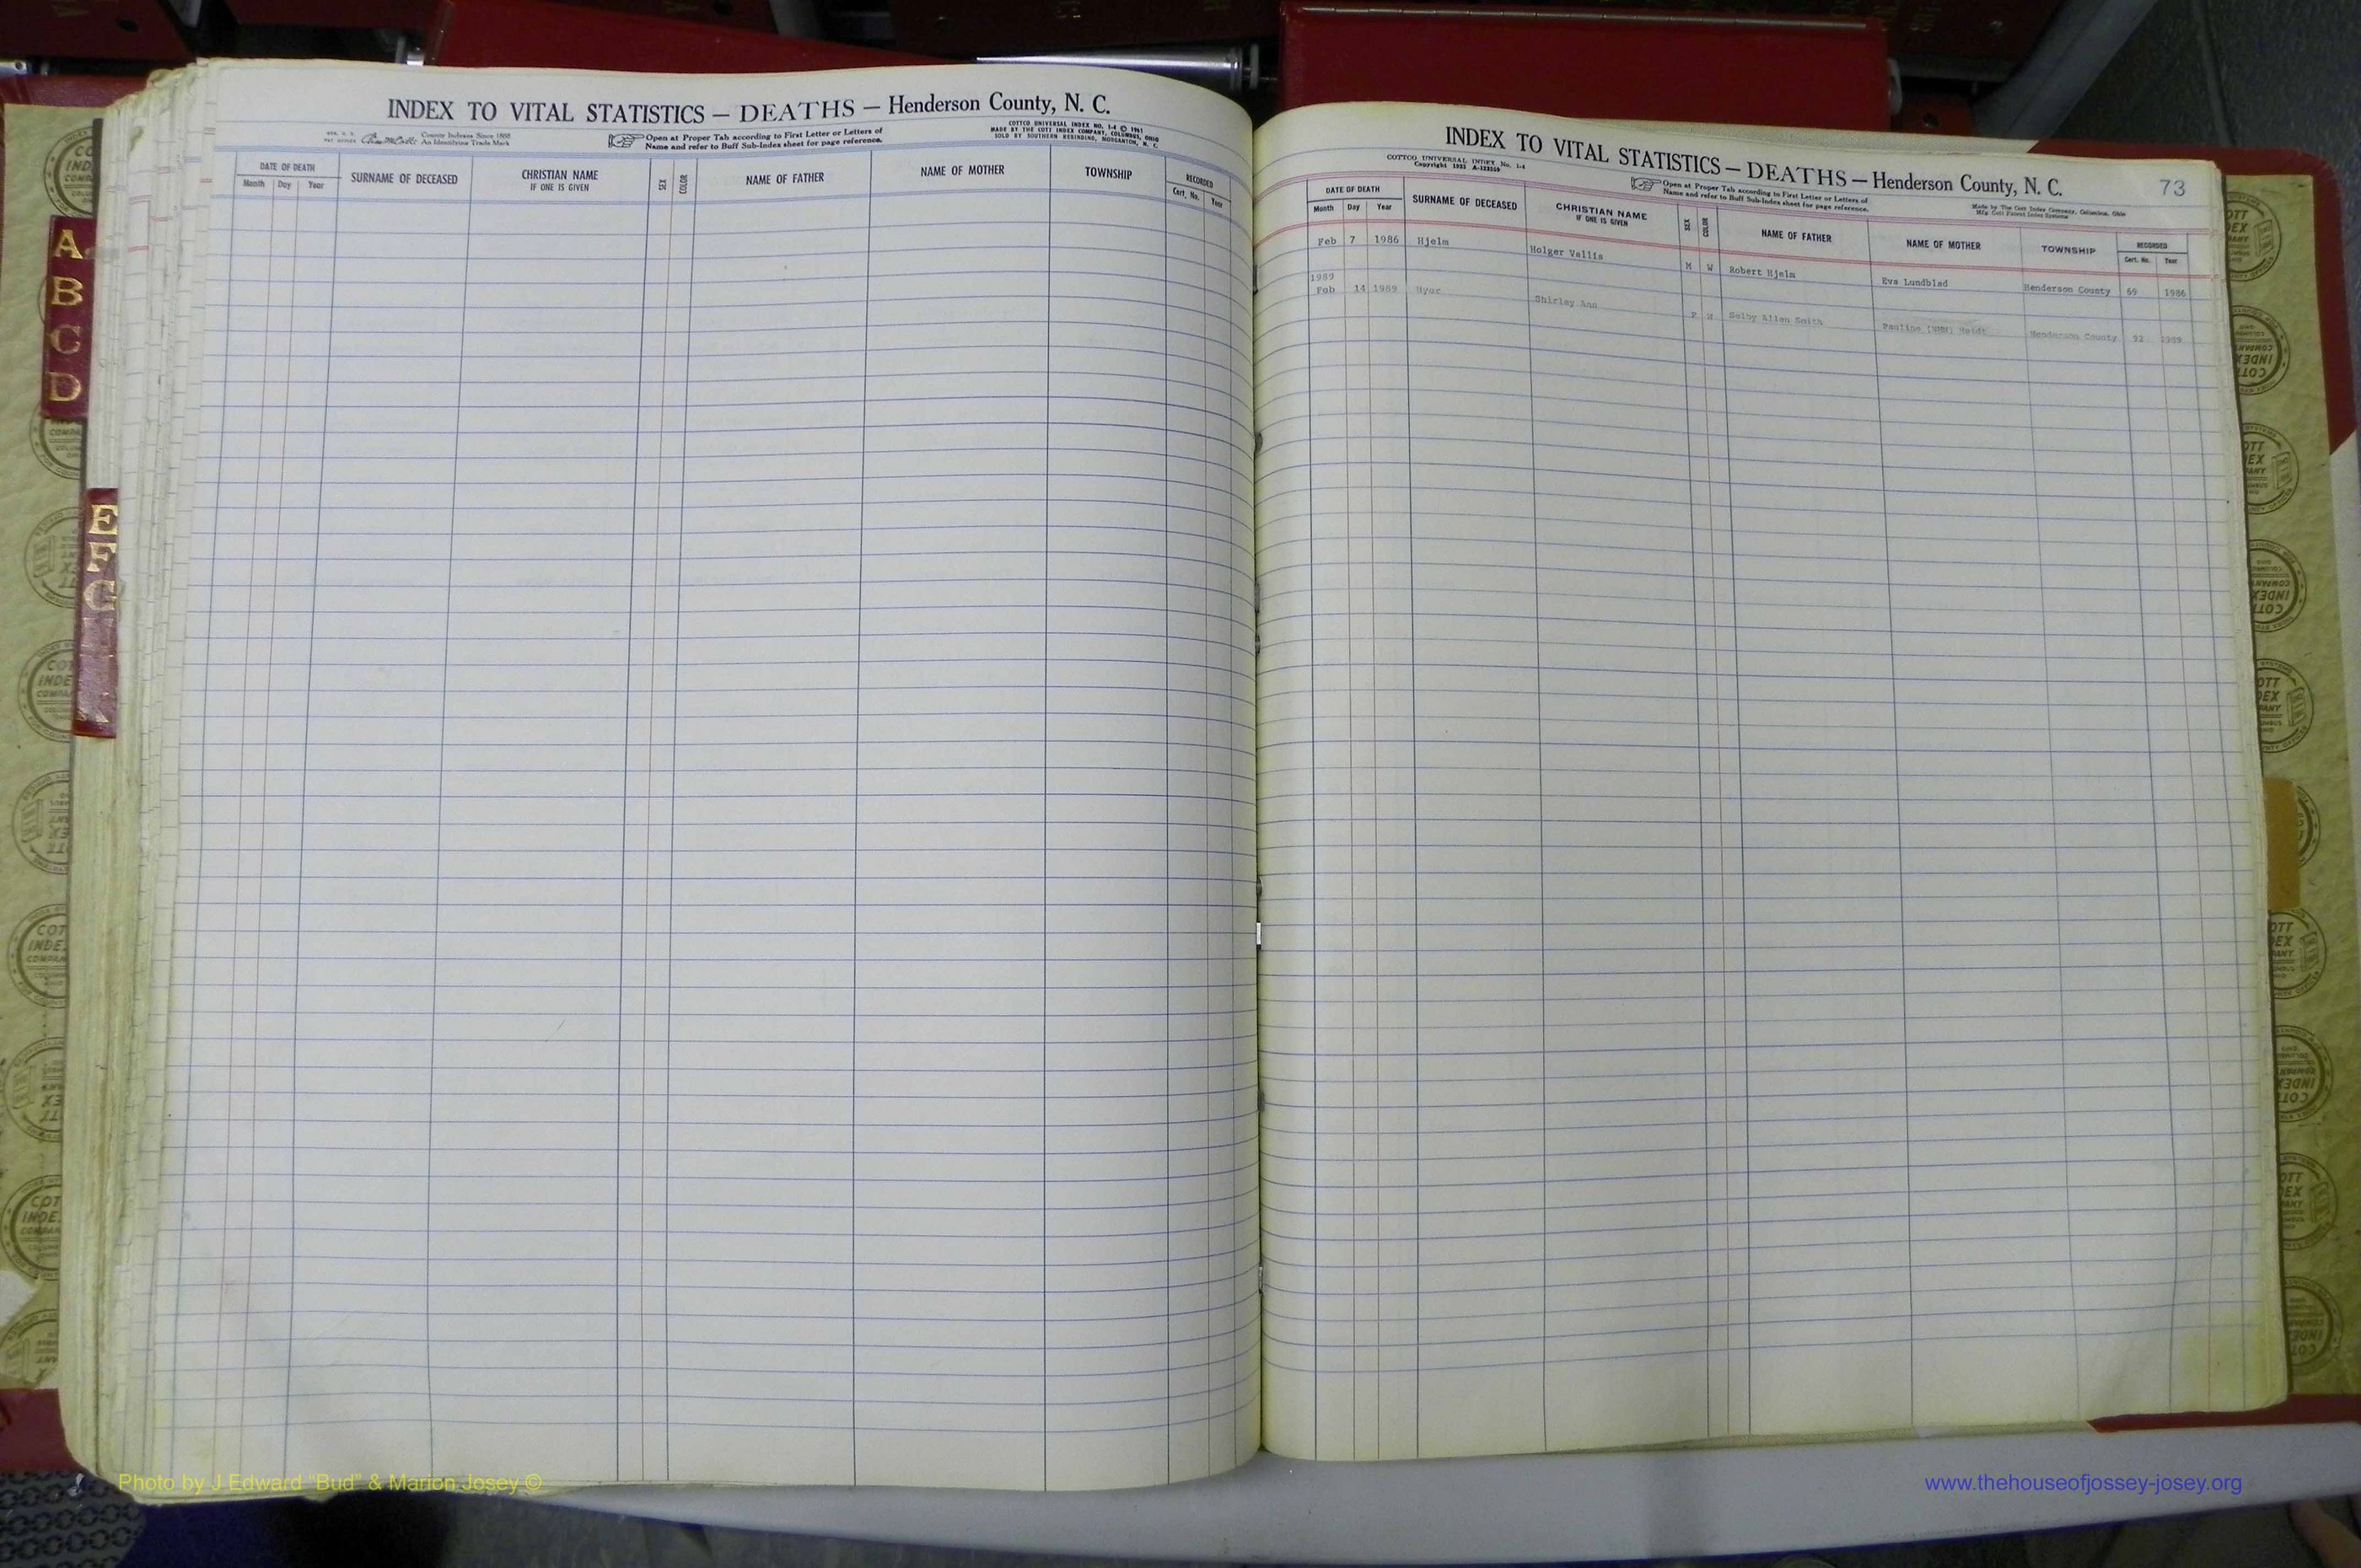 INDEX TO VITAL STATISTICS — DEATHS — Henderson County, N. C.
County Indexes Since 1888
An Identifying Trade Mark
Open at Proper Tab according to First Letter or Letters of
Name and refer to Buff Sub-Index sheet for page reference.
COTTCO UNIVERSAL INDEX NO. 1-4 © 1961
MADE BY THE COTT INDEX COMPANY, COLUMBUS, OHIO
SOLD BY SOUTHERN REBINDING, MORGANTON, N. C.
DATE OF DEATH
Month Day Year
SURNAME OF DECEASED
CHRISTIAN NAME
IF ONE IS GIVEN
SEX
COLOR
NAME OF FATHER
NAME OF MOTHER
TOWNSHIP
RECORDED
Cert. No. Year
A
B
C
D
E
F
G
INDEX TO VITAL STATISTICS — DEATHS — Henderson County, N. C.
73
COTTCO UNIVERSAL INDEX No. 1-4
Open at Proper Tab according to First Letter or Letters of
Name and refer to Buff Sub-Index sheet for page reference.
Made by The Cott Index Company, Columbus, Ohio
DATE OF DEATH
Month Day Year
SURNAME OF DECEASED
CHRISTIAN NAME
IF ONE IS GIVEN
SEX
COLOR
NAME OF FATHER
NAME OF MOTHER
TOWNSHIP
RECORDED
Cert. No. Year
Feb 7 1986 Hjelm Holger Vallis M W Robert Hjelm Eva Lundblad Henderson County 69 1986
1989
Feb 14 1989 Shirley Ann F W Selby Allen Smith Pauline (NMN) Heidt Henderson County 92 1989
Photo by J Edward “Bud” & Marion Josey ©
www.thehouseofjossey-josey.org